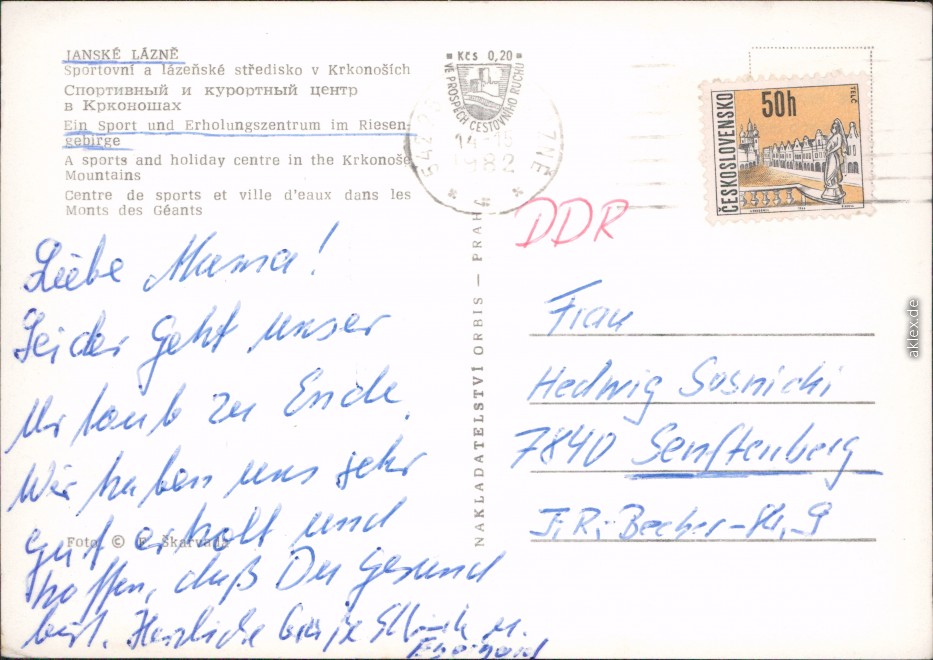 JANSKÉ LÁZNĚ
Sportovní a lázeňské středisko v Krkonoších
Спортивный и курортный центр
в Крконошах
Ein Sport und Erholungszentrum im Riesen-
gebirge
A sports and holiday centre in the Krkonoše
Mountains
Centre de sports et ville d'eaux dans les
Monts des Géants
Liebe Mama!
Leider geht unser
Urlaub zu Ende.
Wir haben uns sehr
gut erholt und
hoffen, daß Du gesund
bist. Herzliche Grüße
Foto © Škarvada
NAKLADATELSTVÍ ORBIS — PRAHA
Kčs 0,20
VE PROSPĚCH CESTOVNÍHO RUCHU
ČESKOSLOVENSKO
50h
TELČ
DDR
Frau
Hedwig Sosnicki
7840 Senftenberg
J.R. Becher-Str. 9
aklex.de